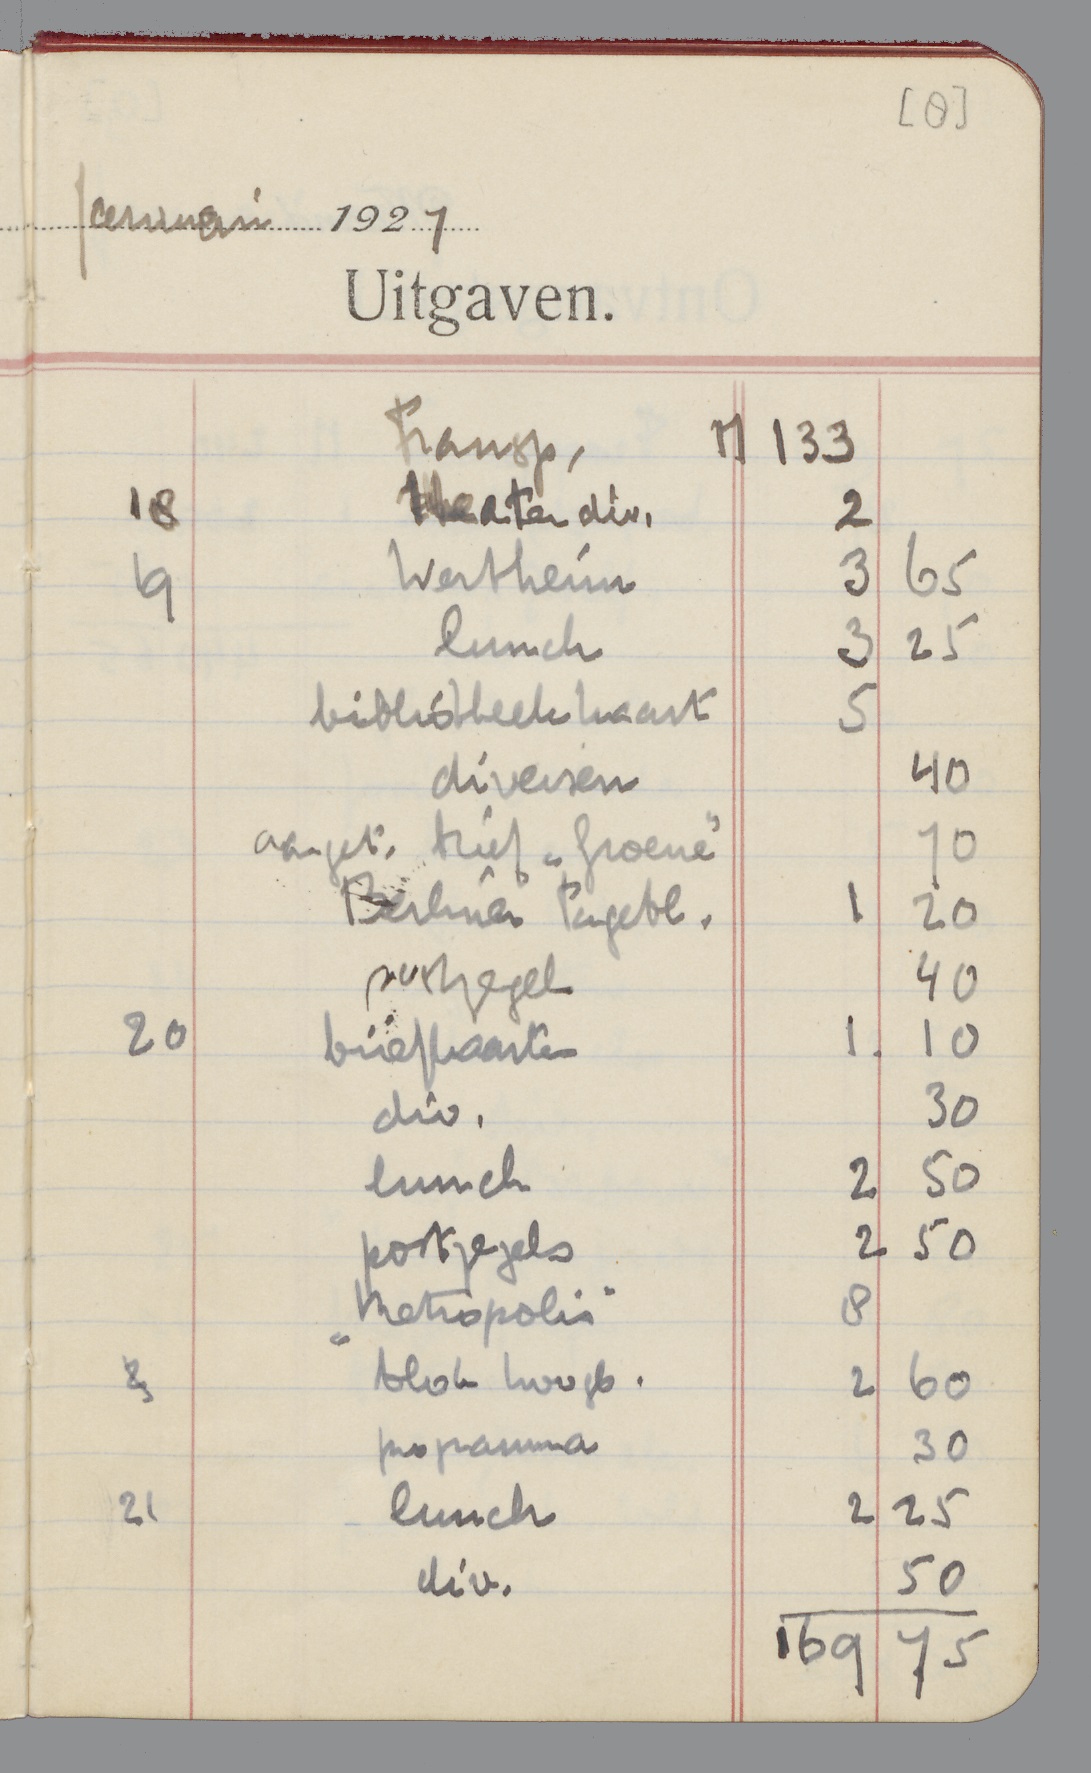 [8]
Januari 1927
Uitgaven.
Transp, M 133
18 theater div. 2
19 Wertheim 3 65
lunch 3 25
bibliotheekkaart 5
diversen 40
aanget. brief „Groene” 70
Berliner Tagebl. 1 20
postzegel 40
20 briefkaarten 1. 10
div. 30
lunch 2 50
postzegels 2 50
„Metropolis” 8
blok 2 60
programma 30
21 lunch 2 25
div. 50
169 75